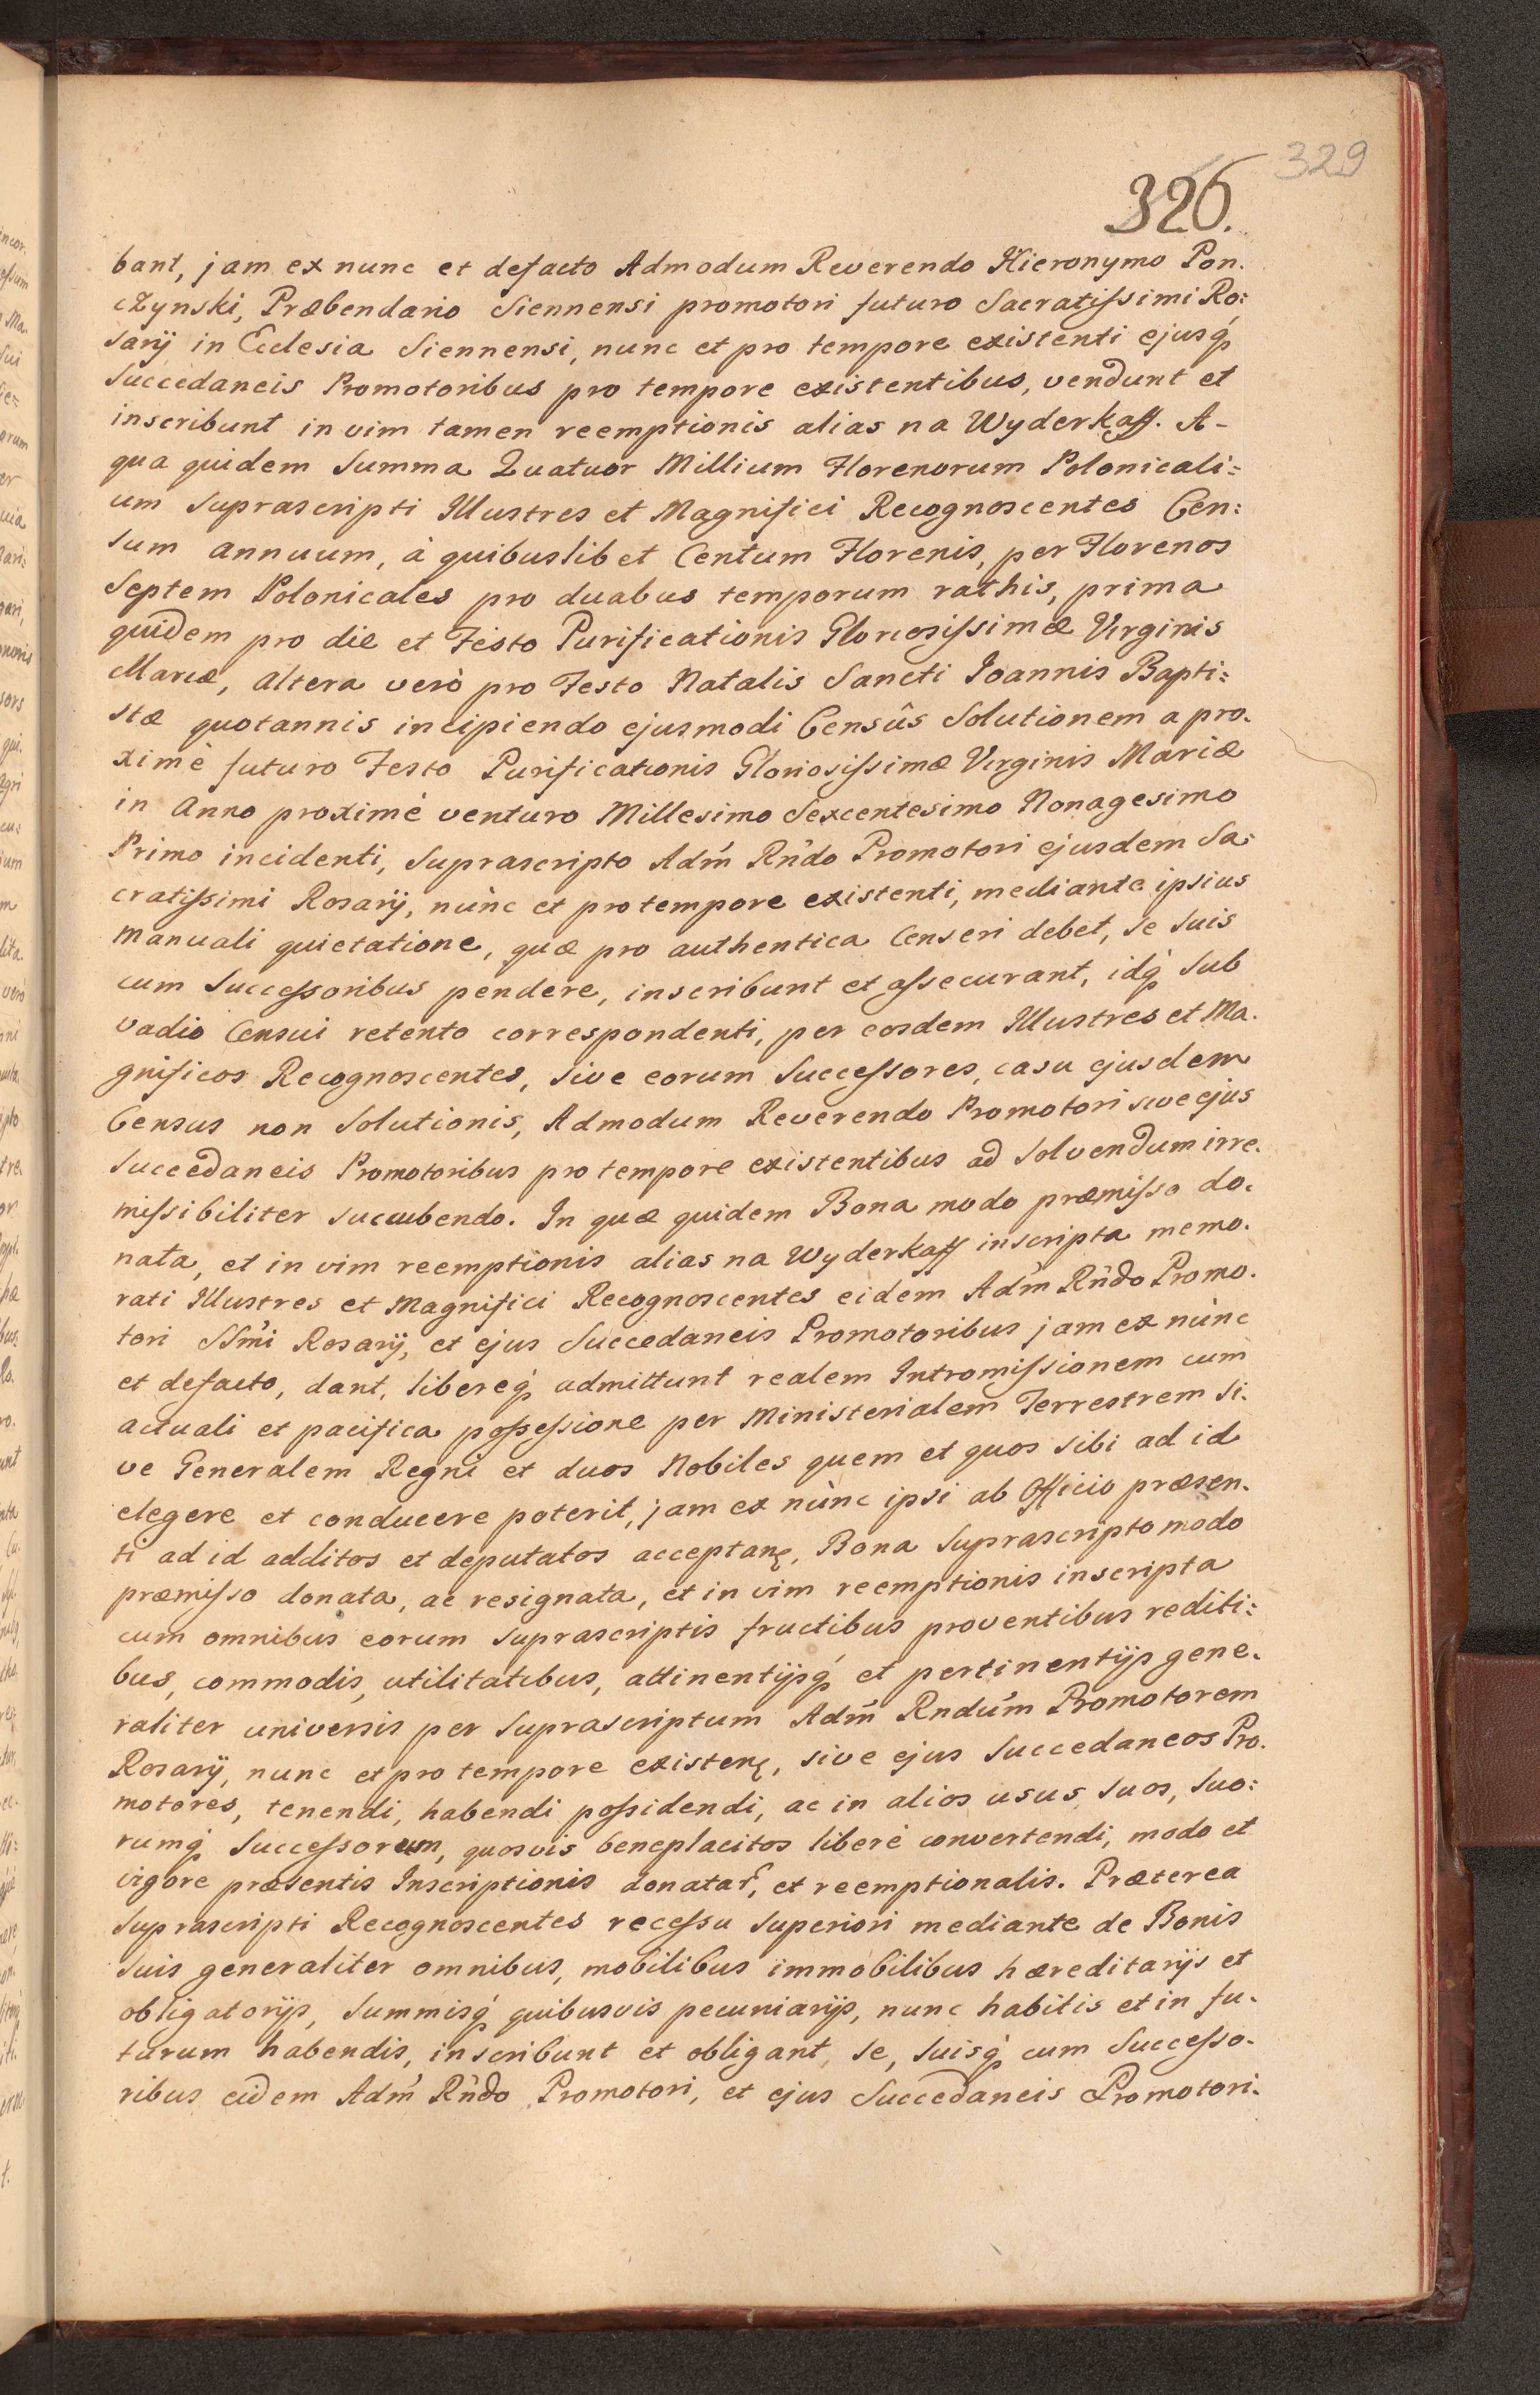 329
326.
bant, jam ex nunc et defacto Admodum Reverendo Hieronymo Pon.
czynski, Præbendario Siennensi promotori futuro Sacratissimi Ro:
sarij in Ecclesia Siennensi, nunc et pro tempore existenti ejusq́
Succedaneis Promotoribus pro tempore existentibus, vendunt et
inscribunt in vim tamen reemptionis alias na Wyderkaff. A-
qua quidem Summa Quatuor Millium Florenorum Polonicali:
um Suprascripti Illustres et Magnifici Recognoscentes Cen:
sum annuum, à quibuslibet Centum Florenis, per Florenos
Septem Polonicales pro duabus temporum rathis, prima
quidem pro die et Festo Purificationis Gloriosissimæ Virginis
Mariæ, altera verò pro Festo Natalis Sancti Joannis Bapti:
stæ quotannis incipiendo ejusmodi Censûs Solutionem a pro.
ximè futuro Festo Purificationis Gloriosissimæ Virginis Mariæ
in Anno proximè venturo Millesimo Sexcentesimo Nonagesimo
Primo incidenti, Suprascripto Adm̃ Rñdo Promotori ejusdem Sa:
cratissimi Rosarij, nùnc et pro tempore existenti, mediante ipsius
manuali quietatione, quæ pro authentica Censeri debet, se suis
cum Successoribus pendere, inscribunt et assecurant, idq́ sub
vadio Censui retento correspondenti, per eosdem Illustres et Ma.
gnificos Recognoscentes, sive eorum Successores, casu ejusdem
Census non Solutionis, Admodum Reverendo Promotori sive ejus
Succedaneis Promotoribus pro tempore existentibus ad solvendum irre.
missibiliter succubendo. In quæ quidem Bona modo præmisso do.
nata, et in vim reemptionis alias na Wyderkaff inscripta memo.
rati Illustres et Magnifici Recognoscentes eidem Adm̃ Rñdo Promo.
tori SSm̃i Rosarij, et ejus Succedaneis Promotoribus jam ex nùnc
et defacto, dant, libereq́ admittunt realem Intromissionem cum
actuali et pacifica possessione per Ministerialem Terrestrem si.
ve Generalem Regni et duos Nobiles quem et quos sibi ad id
elegere et conducere poterit, jam ex nùnc ipsi ab Officio præsen.
ti ad id additos et deputatos acceptanę, Bona Suprascripto modo
præmisso donata, ac resignata, et in vim reemptionis inscripta
cum omnibus eorum suprascriptis fructibus proventibus rediti:
bus, commodis, utilitatibus, attinentijsq́ et pertinentijs gene.
raliter universis per Suprascriptum Adm̃ Rndum̃ Promotorem
Rosarij, nunc et pro tempore existenę, sive ejus Succedaneos Pro.
motores, tenendi, habendi possidendi, ac in alios usus suos, suo:
rumq́ Successorum, quosvis beneplacitos liberè convertendi, modo et
vigore præsentis Inscriptionis donataĩ, et reemptionalis. Præterea
Suprascripti Recognoscentes recessu superiori mediante de Bonis
suis generaliter omnibus, mobilibus immobilibus hæreditarijs et
obligatorijs, summisq́ quibusvis pecuniarijs, nunc habitis et in fu.
turum habendis, inscribunt et obligant, se, suisq́ cum Successo.
ribus eidem Adm̃ Rñdo Promotori, et ejus Succedaneis Promotori.